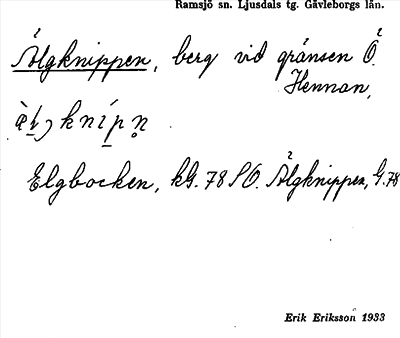 Ramsjö sn. Ljusdals tg. Gävleborgs län.
Älgknippen, berg vid gränsen Ö.
Hennan,
Elgbocken, kG. 78 SO. Älgknippen, G. 78
Erik Eriksson 1933